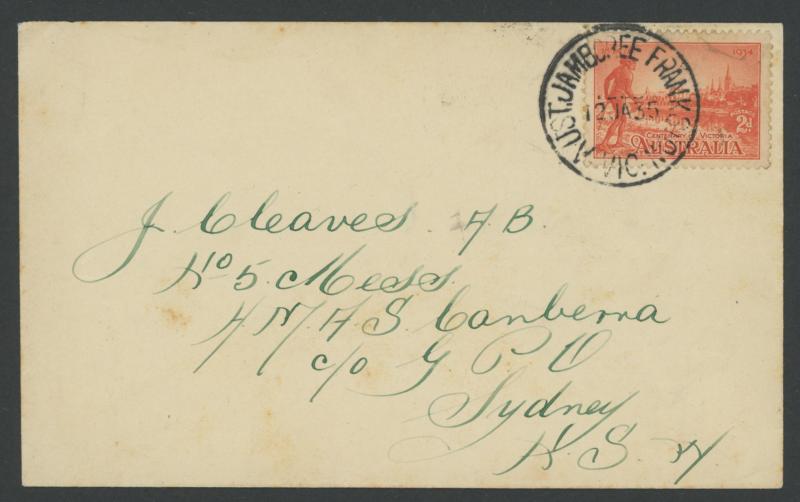 AUST. JAMBOREE FRANKS
12 JA 35
VIC. AUST
1934
CENTENARY OF VICTORIA
2d
AUSTRALIA
J. Cleaves. A.B.
No 5. Mess.
H M A S Canberra
c/o G P O
Sydney
N. S. W